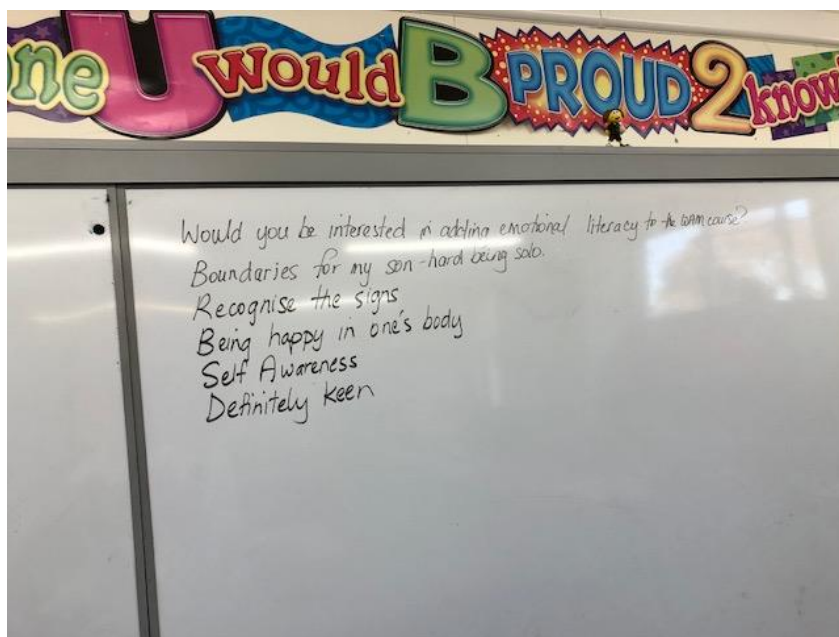 one U would B PROUD 2 know
Would you be interested in adding emotional literacy to the WAM course?
Boundaries for my son - hard being solo.
Recognise the signs
Being happy in one's body
Self Awareness
Definitely keen